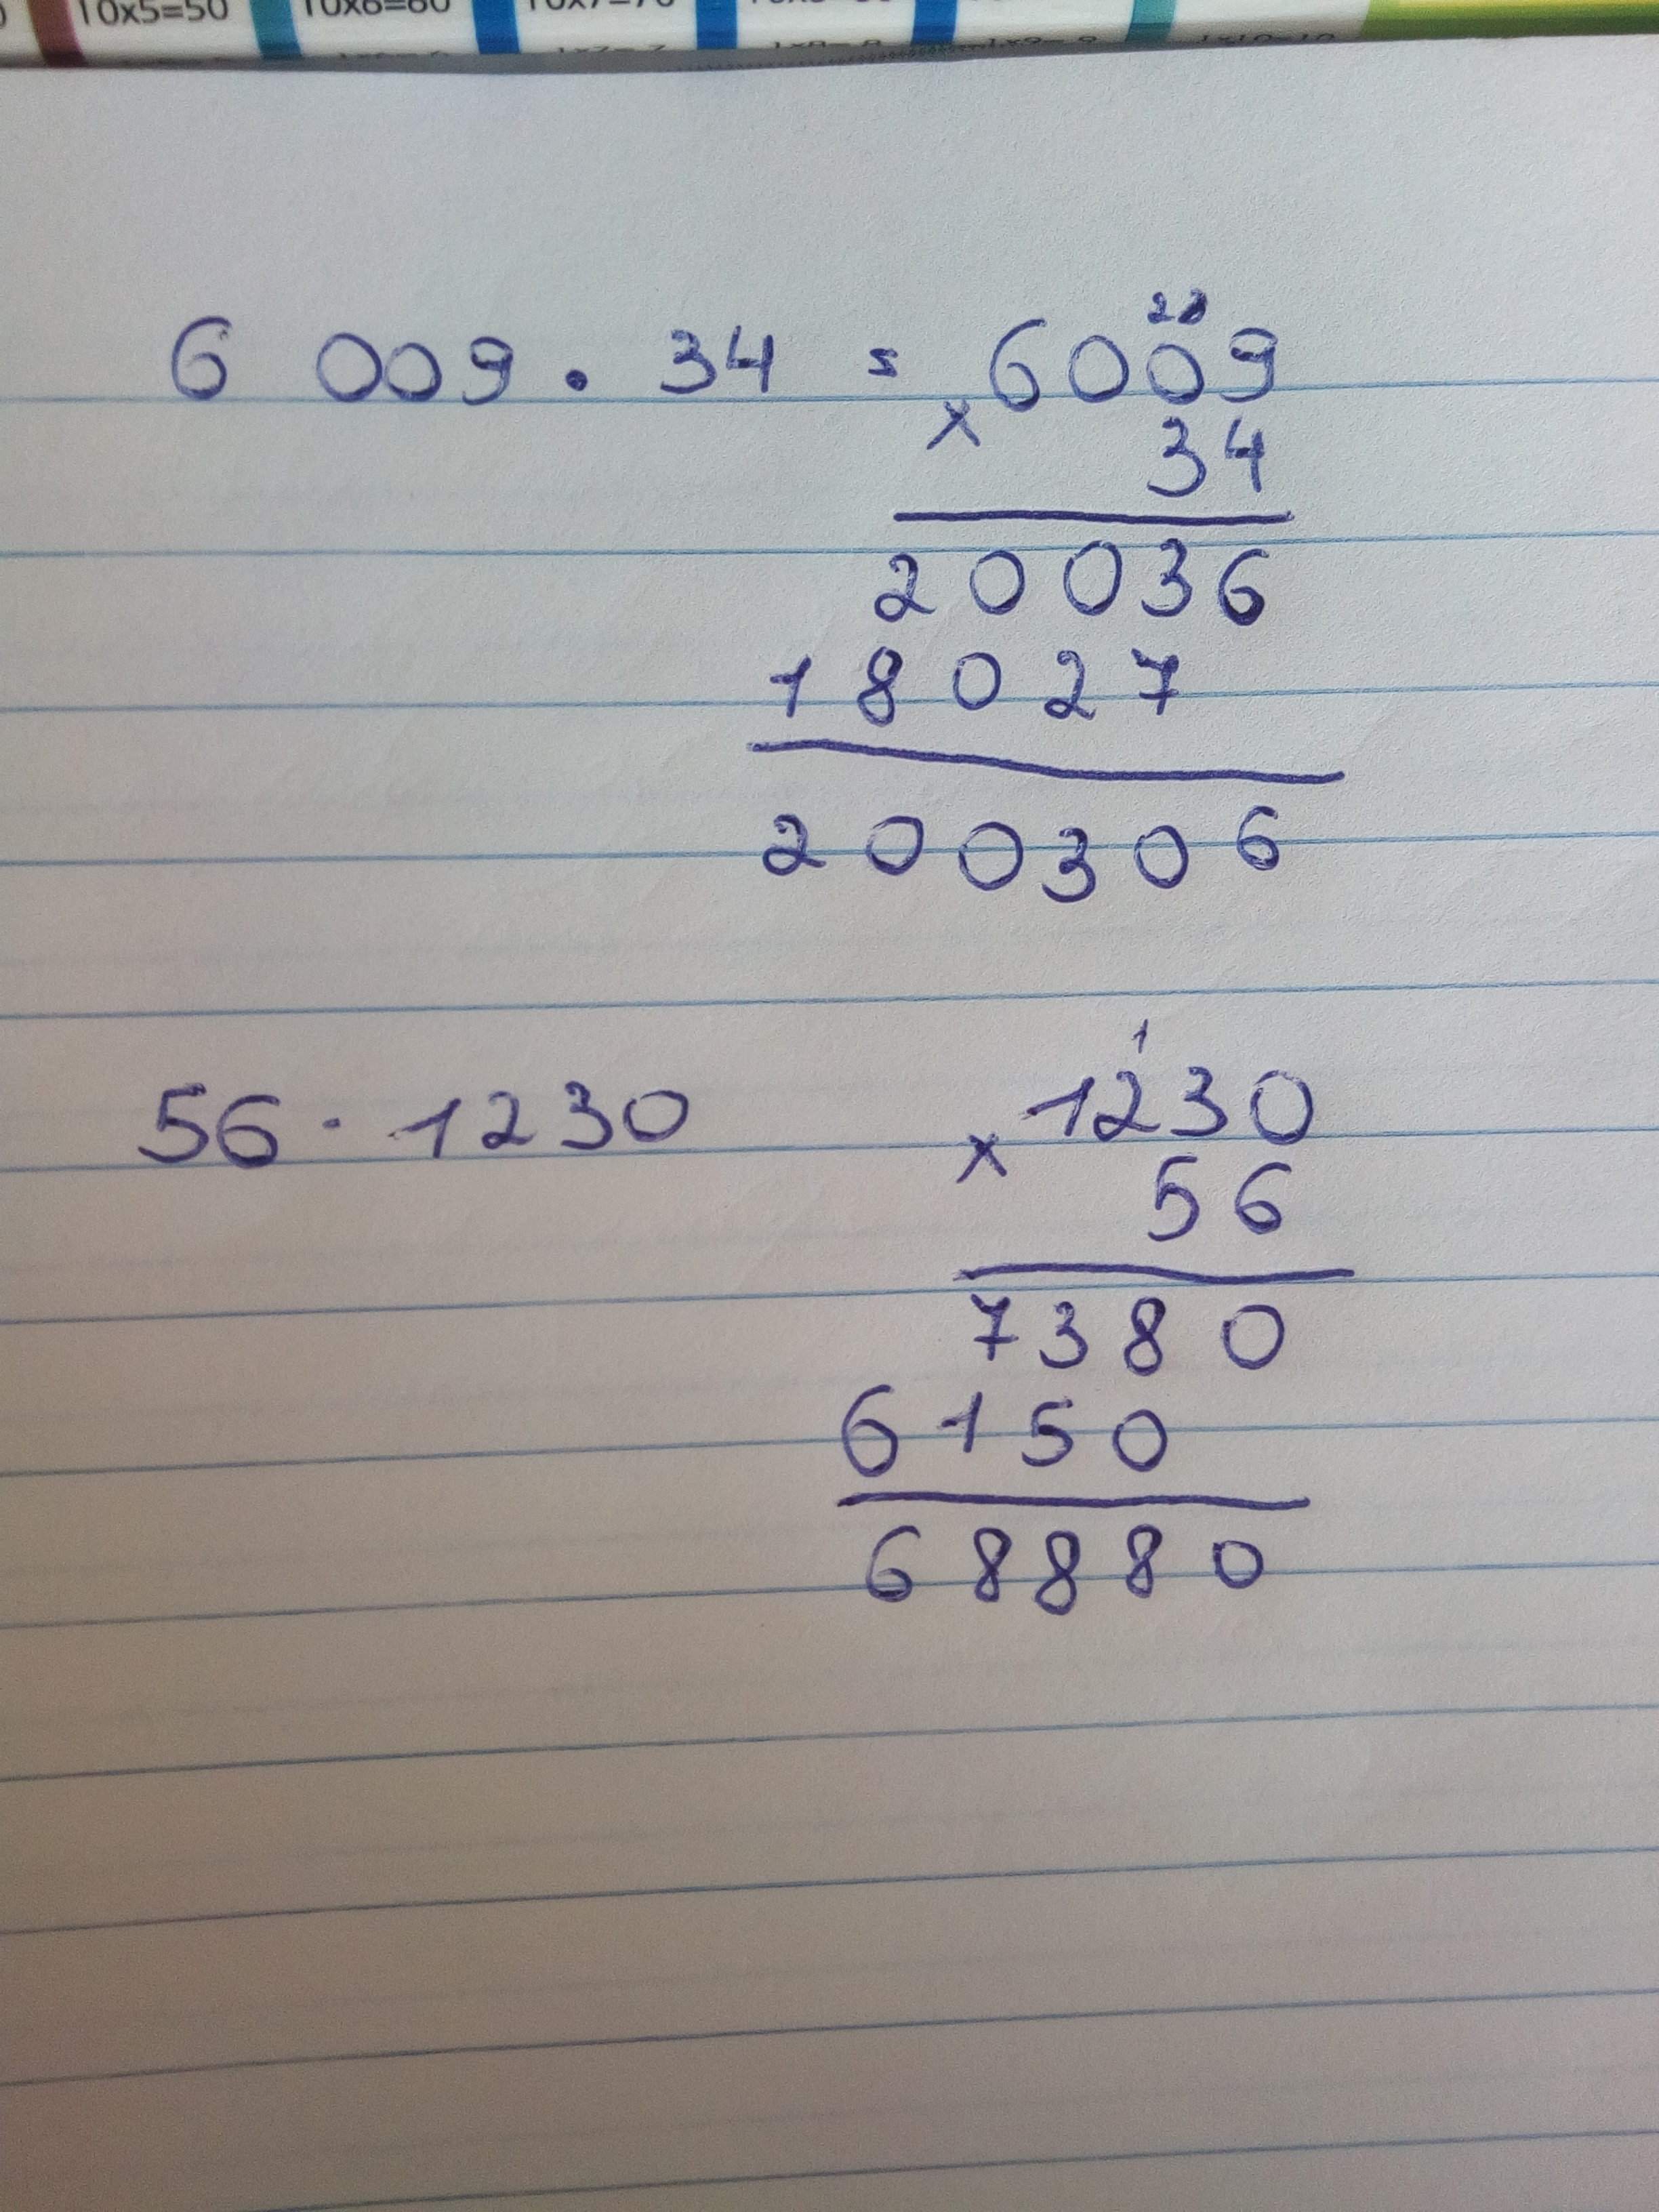 10x5=50 10x6=60
6 009 . 34 = 6009
x 34
20036
18027
200306
1
56 · 1230 1230
x 56
7380
6150
68880